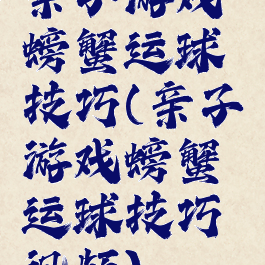 亲子游戏
螃蟹运球
技巧(亲子
游戏螃蟹
运球技巧
视频)